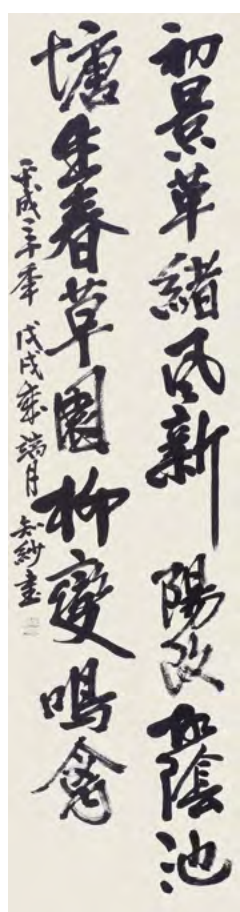 初景革緒風新陽改故陰池
塘生春草園柳變鳴禽
平成三十年戊戌歳端月知紗書